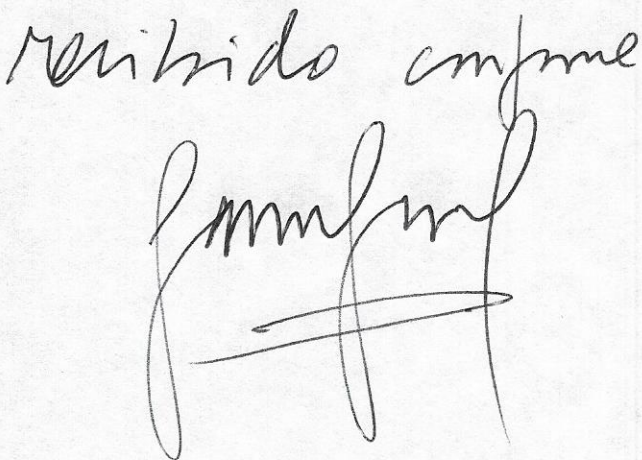 recibido conforme